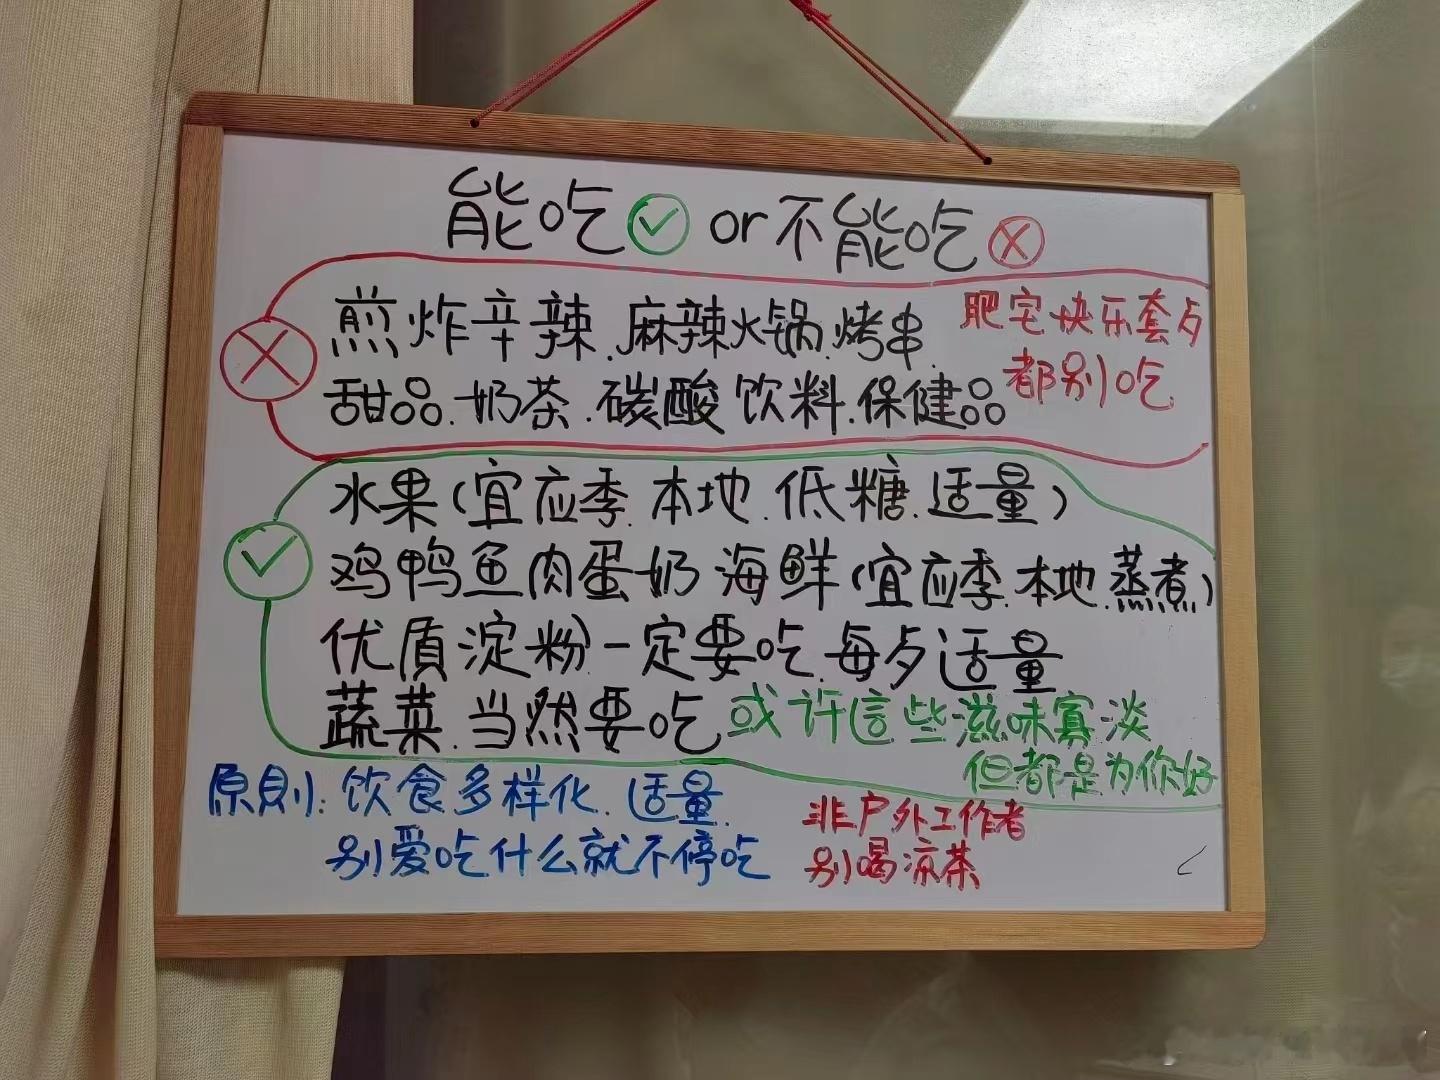 能吃 or 不能吃
煎炸辛辣.麻辣火锅.烤串.
甜品.奶茶.碳酸饮料.保健品
肥宅快乐套歺
都别吃
水果(宜应季.本地.低糖.适量)
鸡鸭鱼肉蛋奶海鲜(宜应季.本地.蒸煮)
优质淀粉一定要吃.每歺适量
蔬菜.当然要吃
或许這些滋味寡淡
但都是为你好
原則:饮食多样化.适量.
别爱吃什么就不停吃
非户外工作者
别喝凉茶